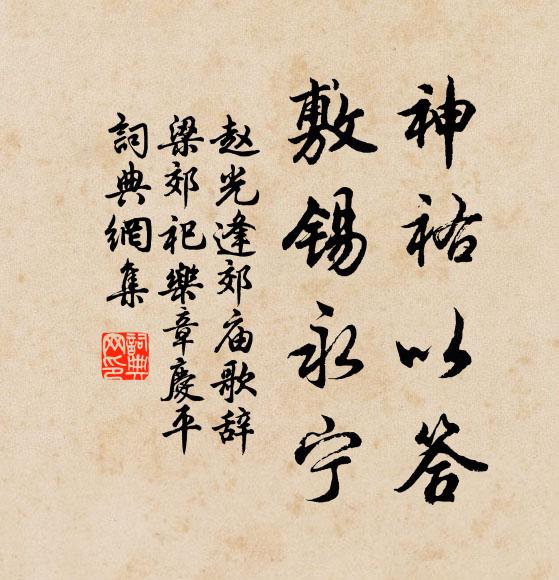 神祐以答
敷锡永宁
赵光逢郊庙歌辞
梁郊祀樂章慶平
詞典網集
詞典网印